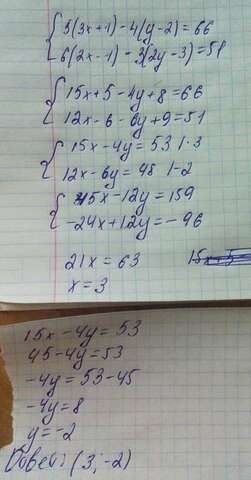 5(3x+1)-4(y-2)=66
6(2x-1)-3(2y-3)=51
15x+5-4y+8=66
12x-6-6y+9=51
15x-4y=53 |·3
12x-6y=48 |-2
45x-12y=159
-24x+12y=-96
21x=63
x=3
15x-4y=53
45-4y=53
-4y=53-45
-4y=8
y=-2
Ответ: (3;-2)